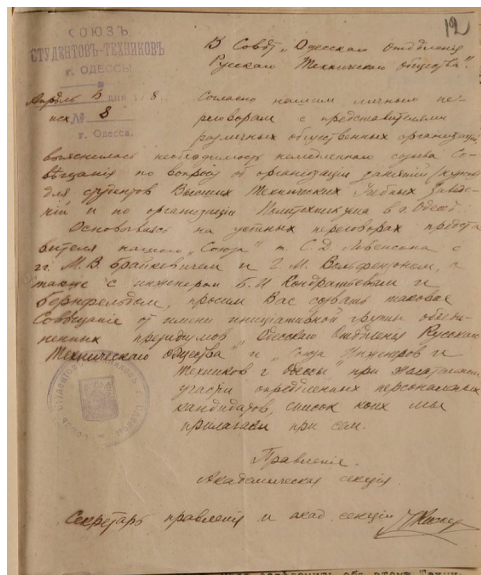 12
СОЮЗЪ
СТУДЕНТОВЪ-ТЕХНИКОВЪ
г. ОДЕССЫ.
Апрель 8 дня 8.
№ 8
г. Одесса.
В Совѣт „Одесскаго Отдѣленія
Русскаго Техническаго Общества".
Согласно нашим личным пе-
реговорам с представителями
различных общественных организацій
выяснилась необходимость немедленнаго созыва Со-
вѣщанія по вопросу об организаціи занятій
для студентов Высших Технических Учебных Заведе-
ній и по организаціи Политехникума в г. Одессѣ.
Основываясь на устных переговорах предста-
вителя нашего „Союза" т. С. Д. Левенсона с
гг. М. В. Брайкевичем и Г. М. Вольфензоном, а
также с инженером Б. И. Кондрашевым и
Бернфельдом, просим Вас созвать таковое
Совѣщаніе от имени иниціативной группы объеди-
ненных президіумов „Одесскаго Отдѣленія Русскаго
Техническаго Общества" и „Союза Инженеров и
Техников г. Одессы" при желательном
участіи опредѣленных персональных
кандидатов, список коих мы
прилагаем при сем.
Правленіе.
Академическая секція.
Секретарь правленія и акад. секціи